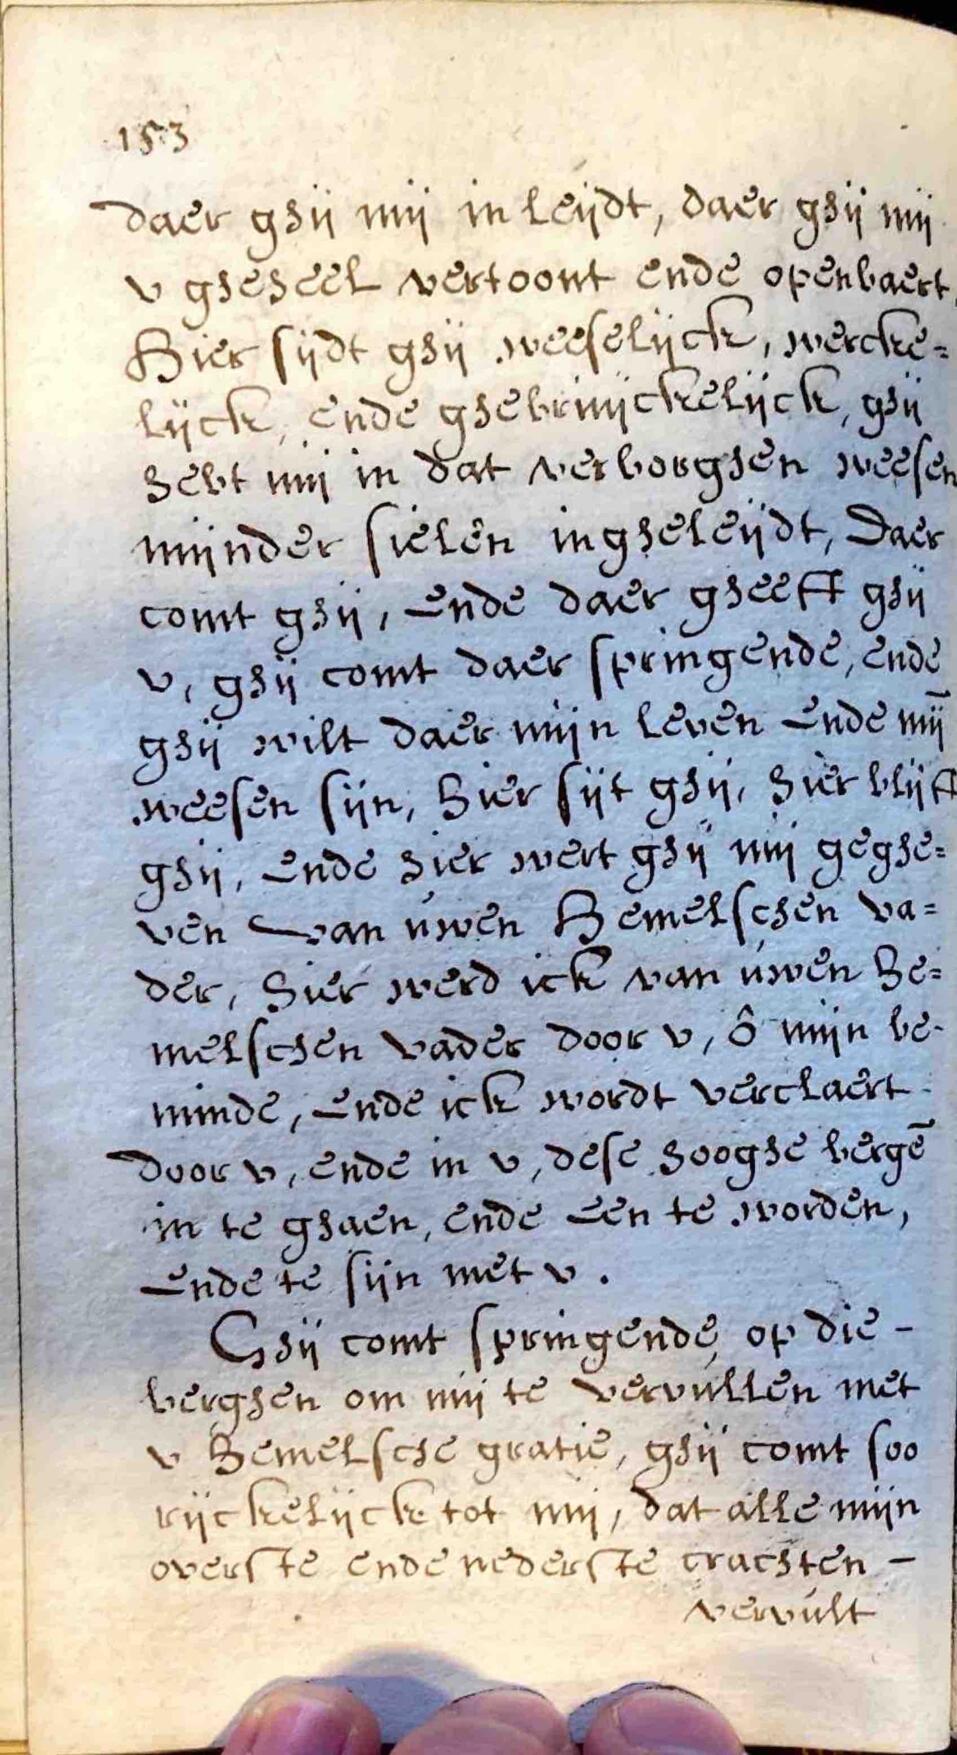 153
daer ghij mij in leijdt, daer ghij mij
v gheheel vertoont ende openbaert,
Hier sijdt ghij weeselijck, wercke=
lijck, ende ghebruijckelijck, ghij
hebt mij in dat verborghen weesen
mijnder sielen ingheleijdt, Daer
comt ghij, ende daer gheeft ghij
v, ghij comt daer springende, ende
ghij wilt daer mijn leven ende mij̄
weesen sijn, hier sijt ghij, hier blijft
ghij, ende hier wert ghij mij geghe=
ven van uwen Hemelschen va=
der, hier werd ick van uwen he=
melschen vader door v, ô mijn be-
minde, ende ick wordt verclaert -
door v, ende in v, dese hooghe bergē
in te ghaen, ende een te worden,
ende te sijn met v.
Ghij comt springende op die -
berghen om mij te vervullen met
v hemelsche gratie, ghij comt soo
rijckelijck tot mij, dat alle mijn
overste ende nederste crachten -
vervult